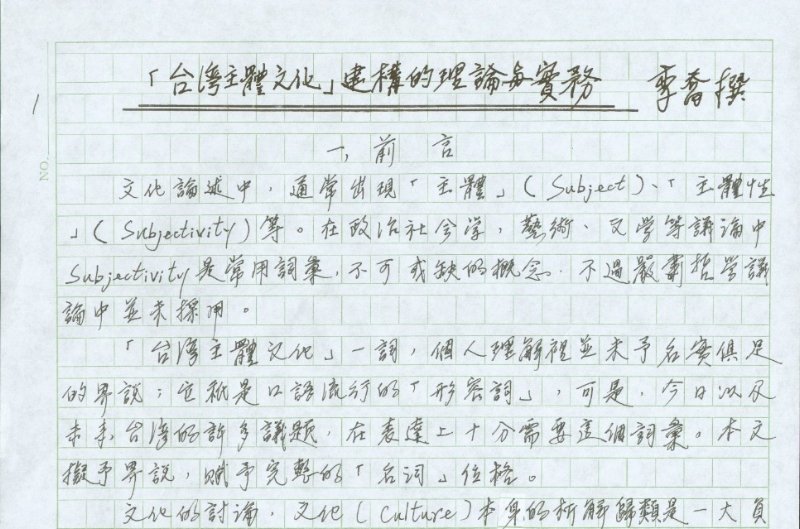 「台湾主體文化」建構的理論与實務 李喬撰
1
NO.
一、前言
文化論述中，通常出現「主體」(Subject)、「主體性
」(Subjectivity)等。在政治社会学，藝術、文学等議論中
Subjectivity是常用詞彙，不可或缺的概念．不過嚴肅哲学議
論中並未採用。
「台湾主體文化」一詞，個人理解裡並未予名實俱足
的界說；它祇是口語流行的「形容詞」，可是，今日以及
未來台湾的許多議題，在表達上十分需要這個詞彙。本文
擬予界說，賦予完整的「名詞」位格。
文化的討論，文化(Culture)本身的析解歸類是一大負